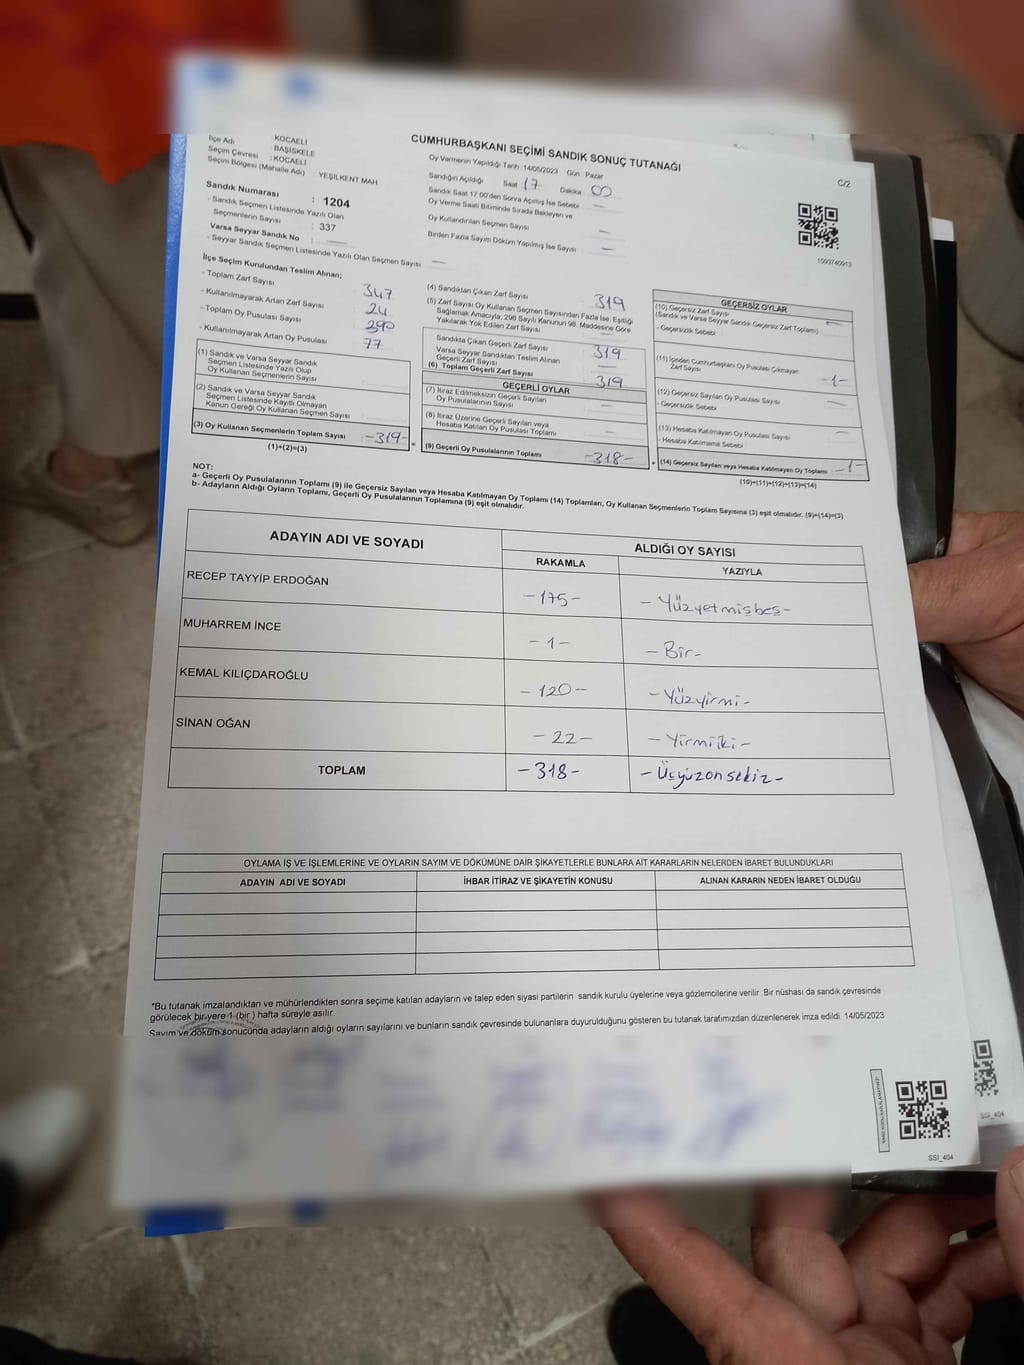 CUMHURBAŞKANI SEÇİMİ SANDIK SONUÇ TUTANAĞI
C/2
: KOCAELİ
İlçe Adı : BAŞİSKELE
Seçim Çevresi : KOCAELİ
Seçim Bölgesi (Mahalle Adı) : YEŞİLKENT MAH.
Sandık Numarası : 1204
- Sandık Seçmen Listesinde Yazılı Olan
Seçmenlerin Sayısı : 337
Varsa Seyyar Sandık No : —
- Seyyar Sandık Seçmen Listesinde Yazılı Olan Seçmen Sayısı —
Oy Vermenin Yapıldığı Tarih 14/05/2023 Gün Pazar
Sandığın Açıldığı Saat 17 Dakika 00
Sandık Saat 17.00'den Sonra Açılmış İse Sebebi : —
Oy Verme Saati Bitiminde Sırada Bekleyen ve
Oy Kullandırılan Seçmen Sayısı : —
Birden Fazla Sayım Döküm Yapılmış İse Sayısı : —
1093740913
İlçe Seçim Kurulundan Teslim Alınan;
- Toplam Zarf Sayısı : 347
- Kullanılmayarak Artan Zarf Sayısı : 24
- Toplam Oy Pusulası Sayısı : 390
- Kullanılmayarak Artan Oy Pusulası : 77
(1) Sandık ve Varsa Seyyar Sandık
Seçmen Listesinde Yazılı Olup
Oy Kullanan Seçmenlerin Sayısı
(2) Sandık ve Varsa Seyyar Sandık
Seçmen Listesinde Kayıtlı Olmayan
Kanun Gereği Oy Kullanan Seçmen Sayısı
(3) Oy Kullanan Seçmenlerin Toplam Sayısı -319-
(1)+(2)=(3)
(4) Sandıktan Çıkan Zarf Sayısı : 319
(5) Zarf Sayısı Oy Kullanan Seçmen Sayısından Fazla İse, Eşitliği
Sağlamak Amacıyla; 298 Sayılı Kanunun 98. Maddesine Göre
Yakılarak Yok Edilen Zarf Sayısı : —
Sandıkta Çıkan Geçerli Zarf Sayısı : 319
Varsa Seyyar Sandıktan Teslim Alınan
Geçerli Zarf Sayısı : —
(6) Toplam Geçerli Zarf Sayısı : 319
GEÇERLİ OYLAR
(7) İtiraz Edilmeksizin Geçerli Sayılan
Oy Pusulalarının Sayısı : —
(8) İtiraz Üzerine Geçerli Sayılan veya
Hesaba Katılan Oy Pusulası Toplamı : —
(9) Geçerli Oy Pusulalarının Toplamı -318-
GEÇERSİZ OYLAR
(10) Geçersiz Zarf Sayısı
(Sandık ve Varsa Seyyar Sandık Geçersiz Zarf Toplamı) : —
- Geçersizlik Sebebi :
(11) İçinden Cumhurbaşkanı Oy Pusulası Çıkmayan
Zarf Sayısı : -1-
(12) Geçersiz Sayılan Oy Pusulası Sayısı : —
- Geçersizlik Sebebi :
(13) Hesaba Katılmayan Oy Pusulası Sayısı : —
- Hesaba Katılmama Sebebi :
(14) Geçersiz Sayılan veya Hesaba Katılmayan Oy Toplamı -1-
(10)+(11)+(12)+(13)=(14)
NOT:
a- Geçerli Oy Pusulalarının Toplamı (9) ile Geçersiz Sayılan veya Hesaba Katılmayan Oy Toplamı (14) Toplamları, Oy Kullanan Seçmenlerin Toplam Sayısına (3) eşit olmalıdır. (9)+(14)=(3)
b- Adayların Aldığı Oyların Toplamı, Geçerli Oy Pusulalarının Toplamına (9) eşit olmalıdır.
ADAYIN ADI VE SOYADI ALDIĞI OY SAYISI
RAKAMLA YAZIYLA
RECEP TAYYİP ERDOĞAN -175- -Yüzyetmişbeş-
MUHARREM İNCE -1- -Bir-
KEMAL KILIÇDAROĞLU -120- -Yüzyirmi-
SİNAN OĞAN -22- -Yirmiiki-
TOPLAM -318- -Üçyüzonsekiz-
OYLAMA İŞ VE İŞLEMLERİNE VE OYLARIN SAYIM VE DÖKÜMÜNE DAİR ŞİKAYETLERLE BUNLARA AİT KARARLARIN NELERDEN İBARET BULUNDUKLARI
ADAYIN ADI VE SOYADI İHBAR İTİRAZ VE ŞİKAYETİN KONUSU ALINAN KARARIN NEDEN İBARET OLDUĞU
*Bu tutanak imzalandıktan ve mühürlendikten sonra seçime katılan adayların ve talep eden siyasi partilerin sandık kurulu üyelerine veya gözlemcilerine verilir. Bir nüshası da sandık çevresinde
görülecek bir yere 1 (bir) hafta süreyle asılır.
Sayım ve döküm sonucunda adayların aldığı oyların sayılarını ve bunların sandık çevresinde bulunanlara duyurulduğunu gösteren bu tutanak tarafımızdan düzenlenerek imza edildi. 14/05/2023
SSI_404
SSI_404